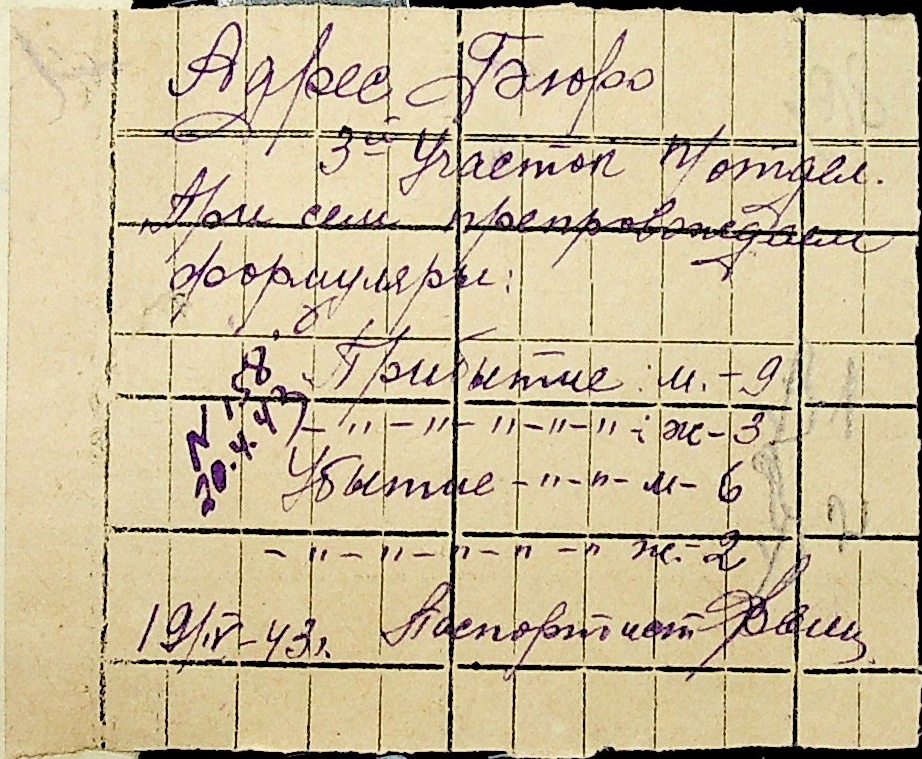 Адрес Бюро
3й Участок п/отдел.
При сем препровождаем
формуляры:
Прибытие: м. - 9
- " - " - " - " - " - : ж - 3
N 158
20.4.43
Убытие - " - " - м - 6
- " - " - " - " - " ж - 2
19/IV-43г. Паспортист